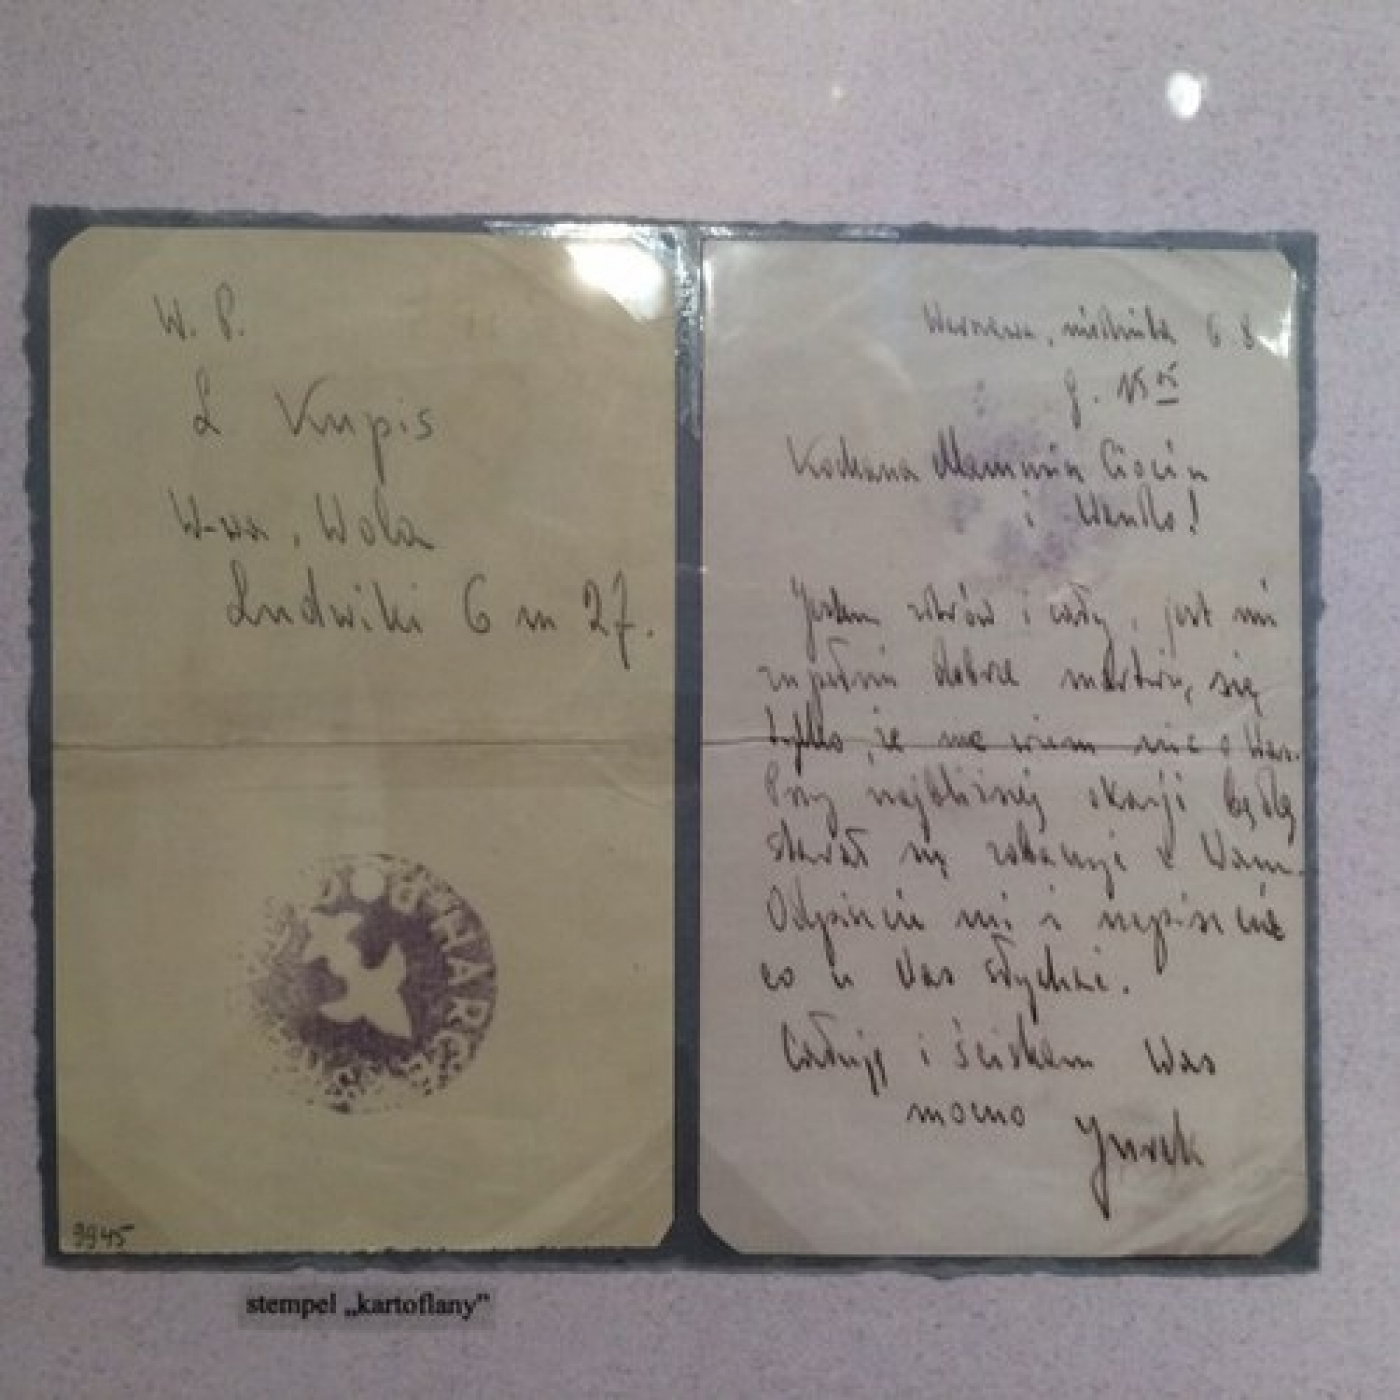 W. P.
L Kupis
W-wa, Wola
Ludwiki 6 m 27.
HARC
9945
stempel „kartoflany”
Warszawa, niedziela 6 8
g. 15
Kochana Mamusiu Ciociu
i Wando!
Jestem zdrów i cały, jest mi
zupełnie dobrze martwię się
tylko, że nie wiem nic o Was.
Przy najbliższej okazji będę
starał się zobaczyć z Wami.
Odpiszcie mi i napiszcie
co u Was słychać.
Całuję i ściskam Was
mocno
Jurek